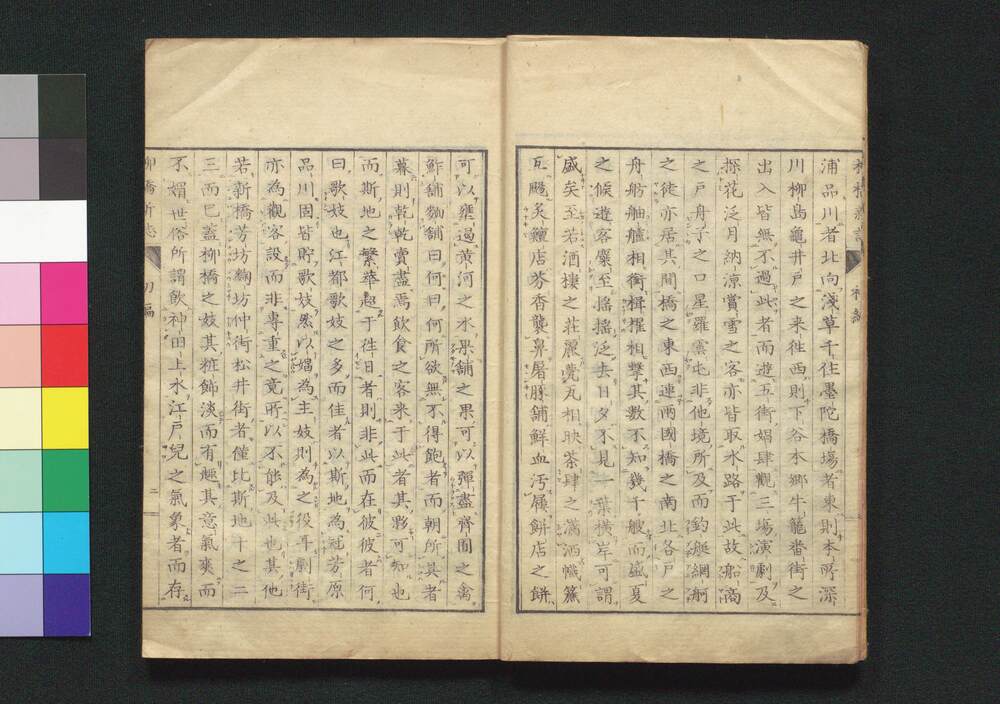 浦品川者北向淺草千住墨陀橋塲者東則本所深
川柳島龜井戸之来徃西則下谷本郷牛籠畨街之
出入皆無不過此者而遊五街娼肆觀三塲演劇及
探花泛月納凉賞雪之客亦皆取水路于此故船商
之戸舟子之口星羅雲屯非他境所及而釣艇網舸
之徒亦居其間橋之東西連兩國橋之南北各戸之
舟舫舳艫相銜楫櫂相擊其數不知幾千艘而盛夏
之候遊客麇至搖搖泛去日夕不見一葉橫岸可謂
盛矣至若酒樓之莊麗甍瓦相映茶肆之瀟洒幟簾
互颺炙鰻店芬香襲鼻屠豚舖鮮血汚履餅店之餅
可以壅遏黄河之水果舖之果可以彈盡齊囿之禽
鮓舖麪舖曰何曰何所欲無不得飽者而朝所具者
暮則乾乾賣盡焉飲食之客来于此者其夥可知也
而斯地之繁華超于徃日者則非此而在彼彼者何
曰歌妓也江都歌妓之多而佳者以斯地為冠芳原
品川固皆貯歌妓然以娼為主妓則為之役耳劇街
亦為觀客設而非專重之竟所以不能及此也其他
若新橋芳坊麴坊仲街松井街者僅比斯地十之二
三而已蓋柳橋之妓其粧飾淡而有趣其意氣爽而
不媚世俗所謂飲神田上水江戸兒之氣象者而存
柳橋新志 初編 二